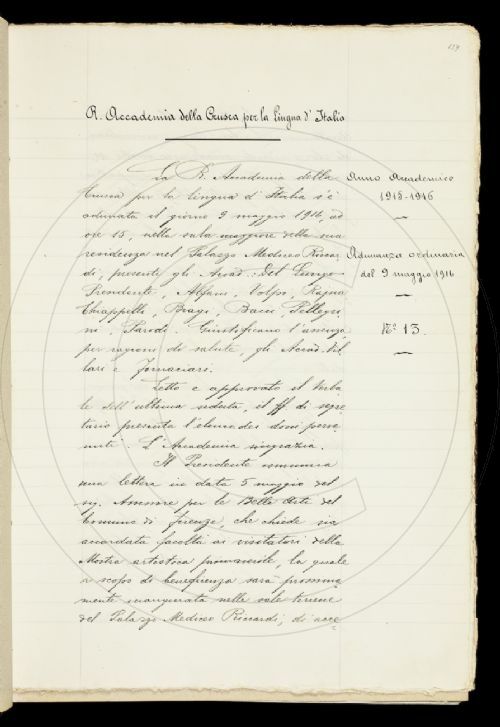 159
R. Accademia della Crusca per la lingua d'Italia
La R. Accademia della
Crusca per la lingua d'Italia s'è
adunata il giorno 9 maggio 1916, ad
ore 15, nella sala maggiore della sua
residenza nel Palazzo Mediceo Riccar
di, presenti gli Accad. Del Lungo
Presidente, Alfani, Volpi, Rajna
Chiappelli, Biagi, Bacci, Pellegri
ni, Parodi. Giustificano l'assenza,
per ragioni di salute, gli Accad. Vil
lari e Fornaciari.
Letto e approvato il verba
le dell'ultima seduta, il ff di segre
tario presenta l'elenco dei doni perve
nuti. L'Accademia ringrazia.
Il Presidente comunica
una lettera in data 5 maggio del
sig. Assessore per le Belle Arti del
Comune di Firenze, che chiede sia
accordata facoltà ai visitatori della
Mostra artistica primaverile, la quale
a scopo di beneficenza sarà prossima
mente inaugurata nelle sale terrene
del Palazzo Mediceo Riccardi, di acce
Anno Accademico
1915-1916
Adunanza ordinaria
del 9 maggio 1916
N.º 13.